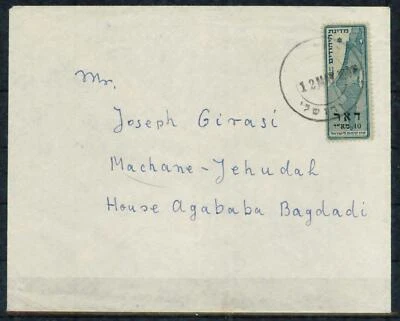 מדינת היהודים
12 MAY
דאר
10
Mr.
Joseph Girasi
Machane-Jehudah
House Agababa Bagdadi